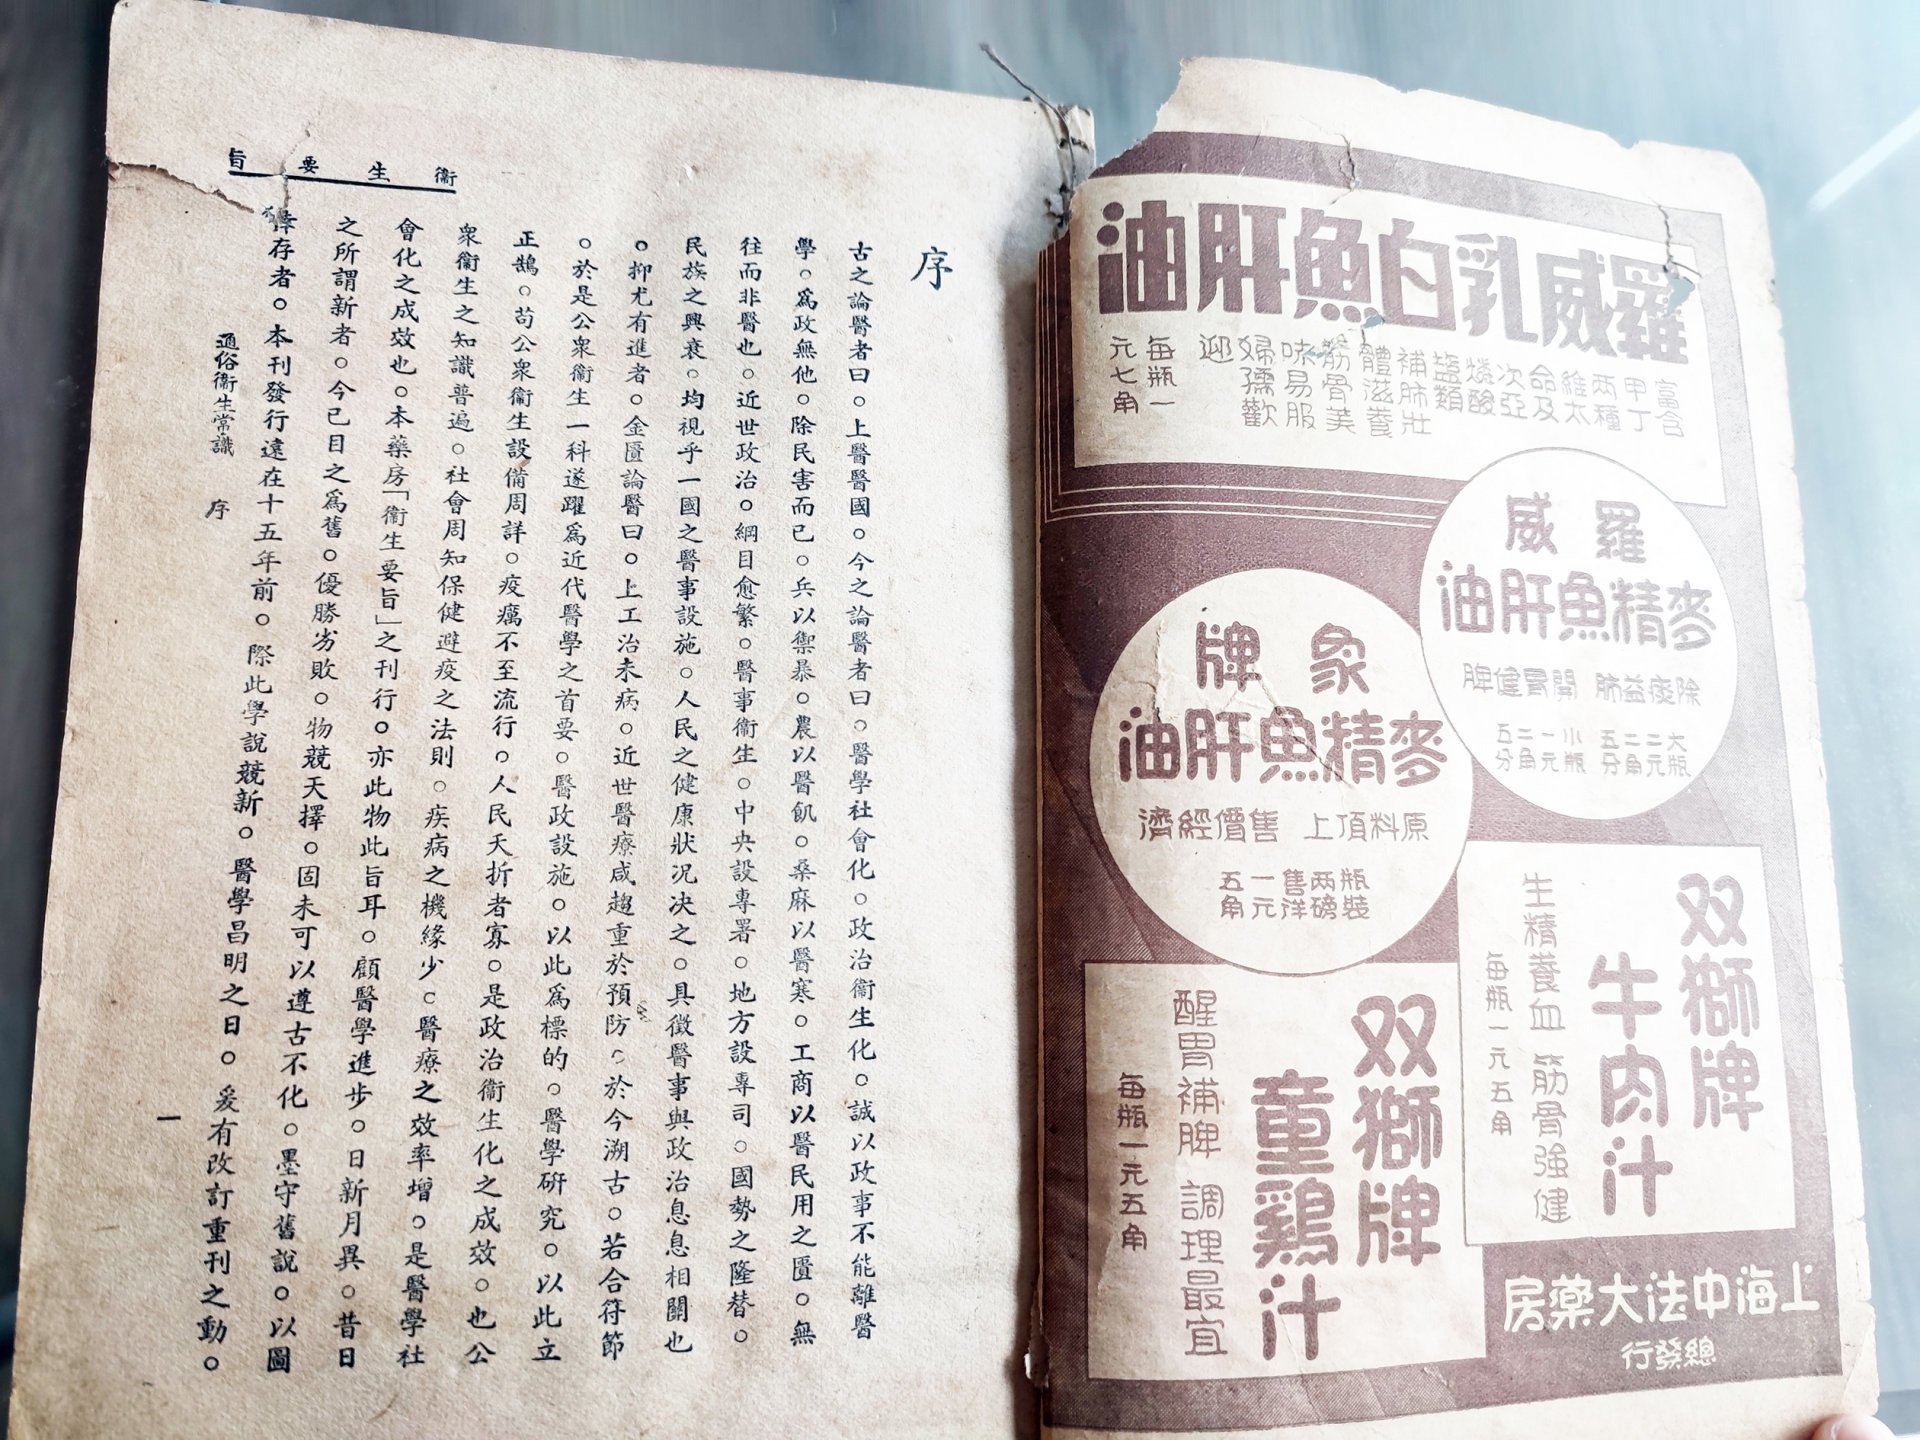 羅威乳白魚肝油
富含
甲丁
兩種
維太
命及
次亞
燐酸
鹽類
補肺壯
體滋養
筋骨美
味易服
婦孺歡
迎
每瓶一
元七角
羅威
麥精魚肝油
除痰益肺 開胃健脾
大瓶二元二角五分
小瓶一元二角五分
象牌
麥精魚肝油
原料頂上 售價經濟
瓶裝兩磅售洋一元五角
双獅牌
牛肉汁
生精養血 筋骨強健
每瓶一元五角
双獅牌
童鷄汁
醒胃補脾 調理最宜
每瓶一元五角
上海中法大藥房
總發行
衞生要旨
序
古之論醫者曰。上醫醫國。今之論醫者曰。醫學社會化。政治衞生化。誠以政事不能離醫
學。爲政無他。除民害而已。兵以禦暴。農以醫飢。桑麻以醫寒。工商以醫民用之匱。無
往而非醫也。近世政治。綱目愈繁。醫事衞生。中央設專署。地方設專司。國勢之隆替。
民族之興衰。均視乎一國之醫事設施。人民之健康狀況決之。具徵醫事與政治息息相關也
。抑尤有進者。金匱論醫曰。上工治未病。近世醫療咸趨重於預防。於今溯古。若合符節
。於是公衆衞生一科遂躍爲近代醫學之首要。醫政設施。以此爲標的。醫學研究。以此立
正鵠。苟公衆衞生設備周詳。疫癘不至流行。人民夭折者寡。是政治衞生化之成效。也公
衆衞生之知識普遍。社會周知保健避疫之法則。疾病之機緣少。醫療之效率增。是醫學社
會化之成效也。本藥房「衞生要旨」之刊行。亦此物此旨耳。顧醫學進步。日新月異。昔日
之所謂新者。今已目之爲舊。優勝劣敗。物競天擇。固未可以遵古不化。墨守舊說。以圖
倖存者。本刊發行遠在十五年前。際此學說競新。醫學昌明之日。爰有改訂重刊之動。
通俗衞生常識 序
一